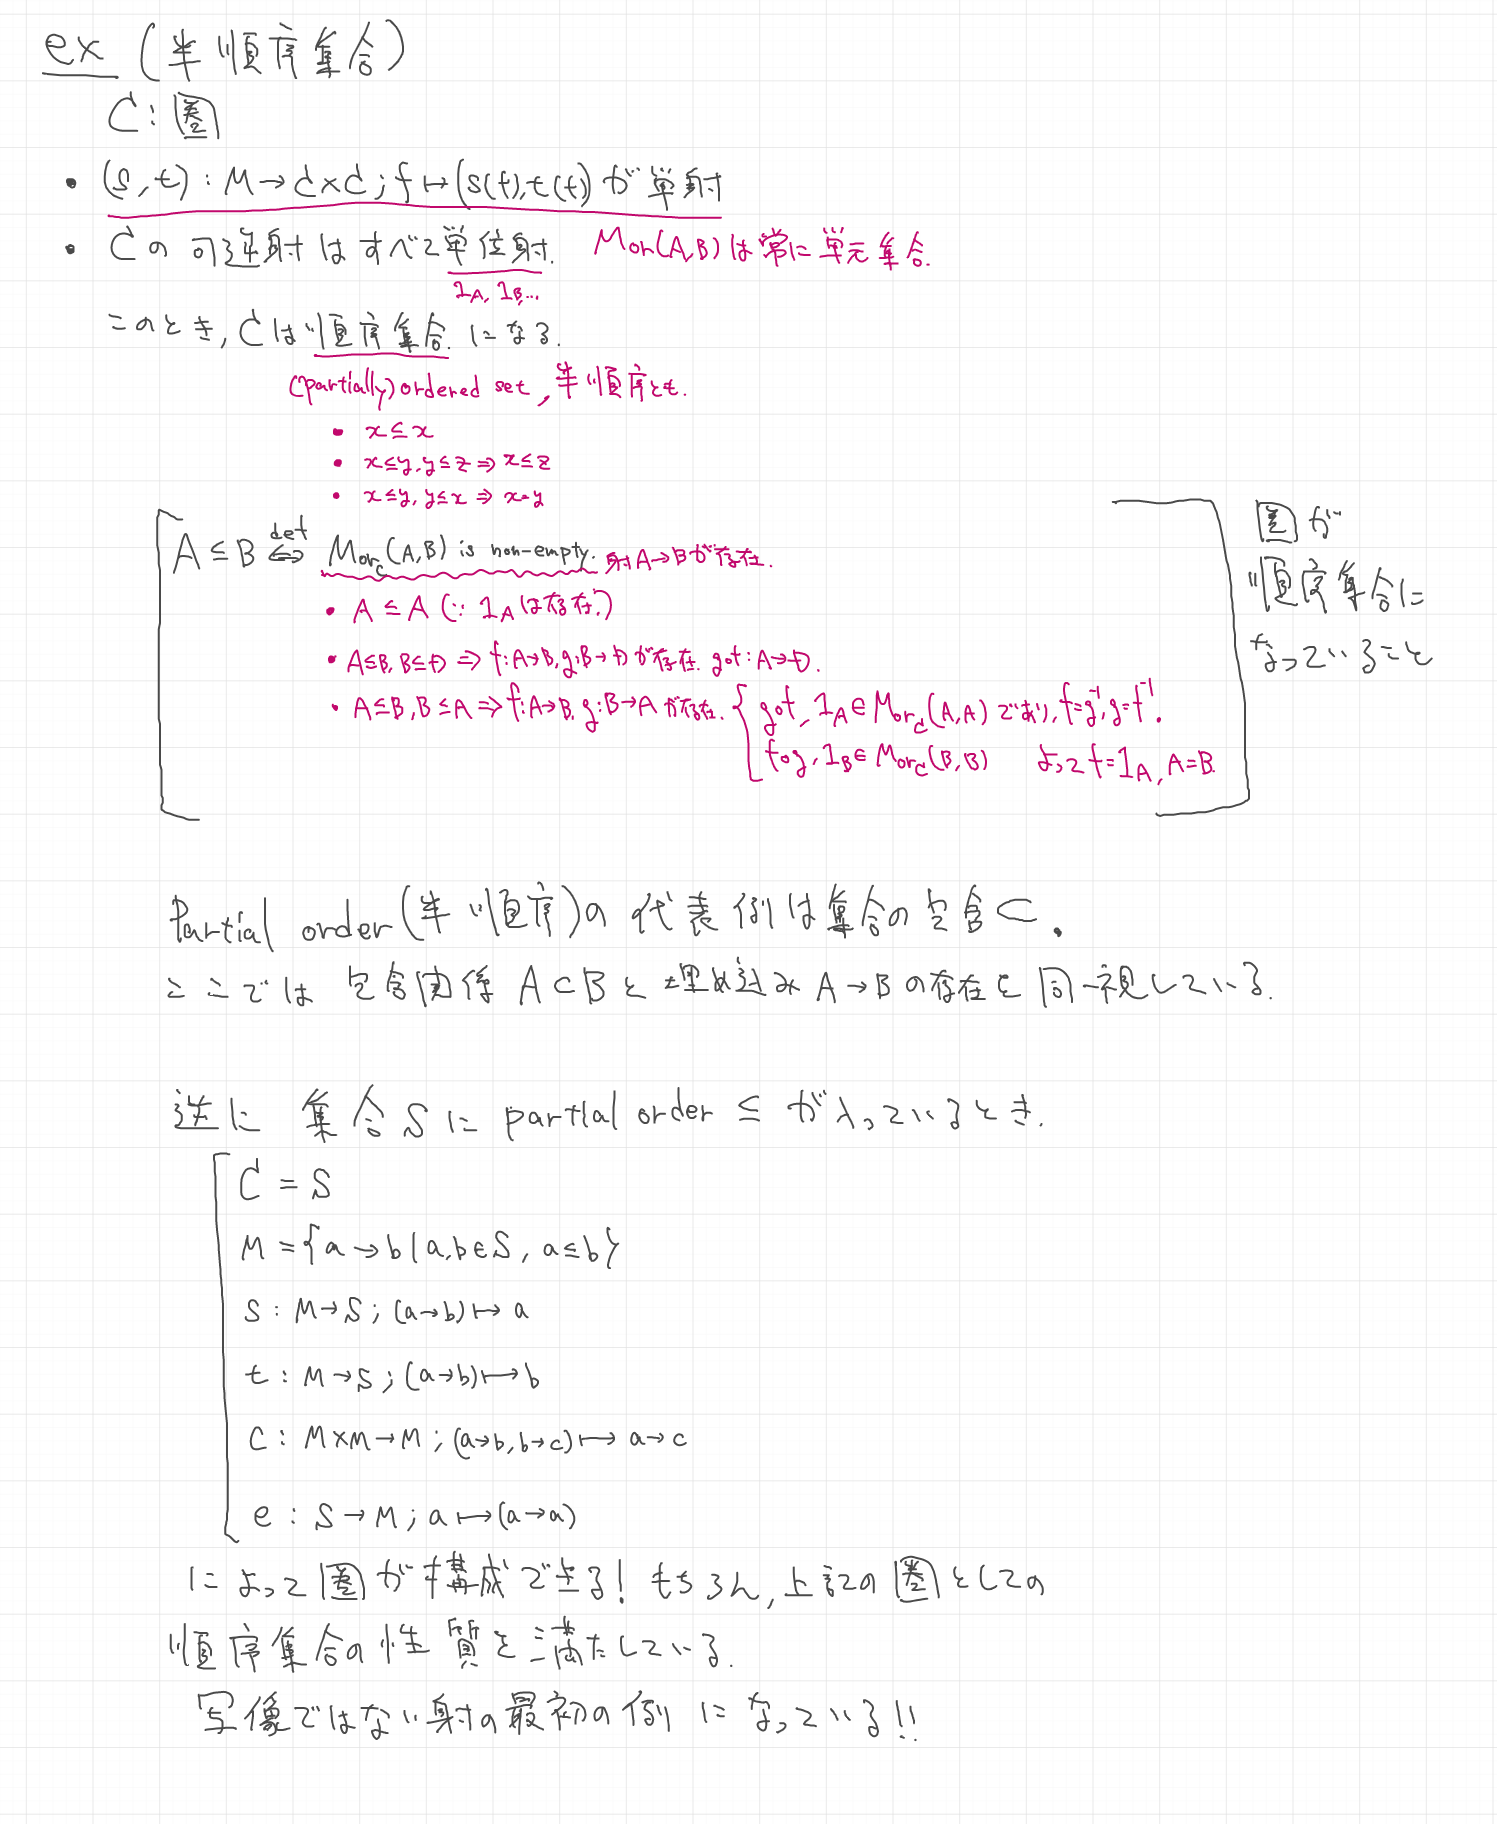 ex (半順序集合)
C : 圏
• (s, t) : M → C × C ; f ↦ (s(f), t(f)) が単射
• Cの可逆射はすべて単位射. Mor(A,B)は常に単元集合.
1_A, 1_B, ...
このとき, Cは順序集合になる.
(partially) ordered set, 半順序とも.
• x ≤ x
• x ≤ y, y ≤ z ⇒ x ≤ z
• x ≤ y, y ≤ x ⇒ x = y
A ≤ B ⇔def Mor_C(A,B) is non-empty. 射A→Bが存在.
• A ≤ A (∵ 1_Aは存在.)
• A≤B, B≤D ⇒ f:A→B, g:B→Dが存在. g∘f : A→D.
• A≤B, B≤A ⇒ f:A→B, g:B→Aが存在. { g∘f, 1_A ∈ Mor_C(A,A) であり, f=g⁻¹, g=f⁻¹.
f∘g, 1_B ∈ Mor_C(B,B) よってf=1_A, A=B.
圏が
順序集合に
なっていること
Partial order (半順序)の代表例は集合の包含⊂.
ここでは包含関係 A⊂B と埋め込み A→B の存在を同一視している.
逆に 集合Sに partial order ≤ が入っているとき.
C = S
M = {a → b | a, b ∈ S, a ≤ b}
s : M → S ; (a→b) ↦ a
t : M → S ; (a→b) ↦ b
c : M×M → M ; (a→b, b→c) ↦ a→c
e : S → M ; a ↦ (a→a)
によって圏が構成できる! もちろん, 上記の圏としての
順序集合の性質を満たしている.
写像ではない射の最初の例になっている!!